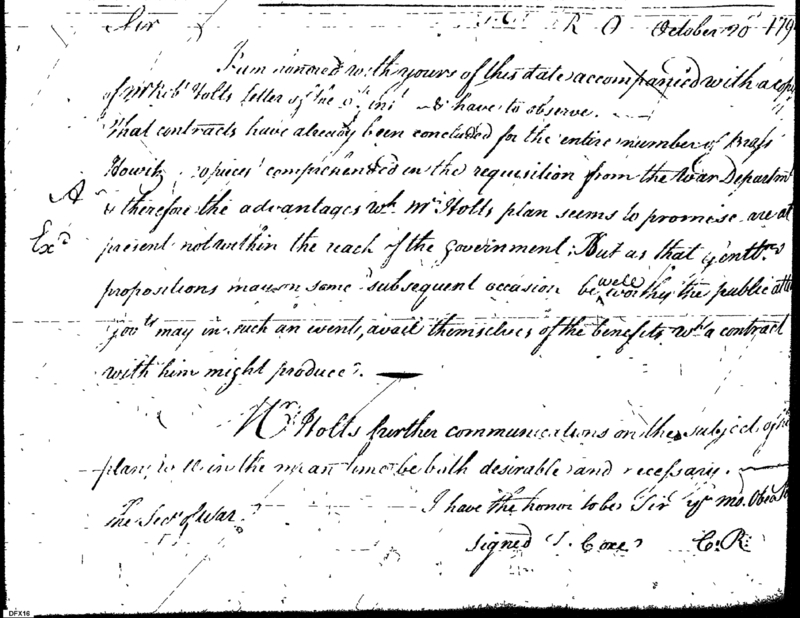 Sir R O October 20th 179
I am honored with yours of this date accompanied with a copy
of Mr Robt Holts letter of the inst & have to observe.
That contracts have already been concluded for the entire number of Brass
Howitz pieces comprehended in the requisition from the War Departmt
A
& therefore the advantages wh. Mr Holts plan seems to promise are at
Exd
present not within the reach of the government. But as that gentlns
propositions may on some subsequent occasion be well worthy the public atten
Govt may in such an event, avail themselves of the benefits wh a contract
with him might produce.
Mr Holts further communications on the subject of his
plan, will in the mean time be both desirable and necessary.
I have the honor to be Sir yr mo. Obed St
The Secy of War.
signed T. Coxe C.R.
DFX16